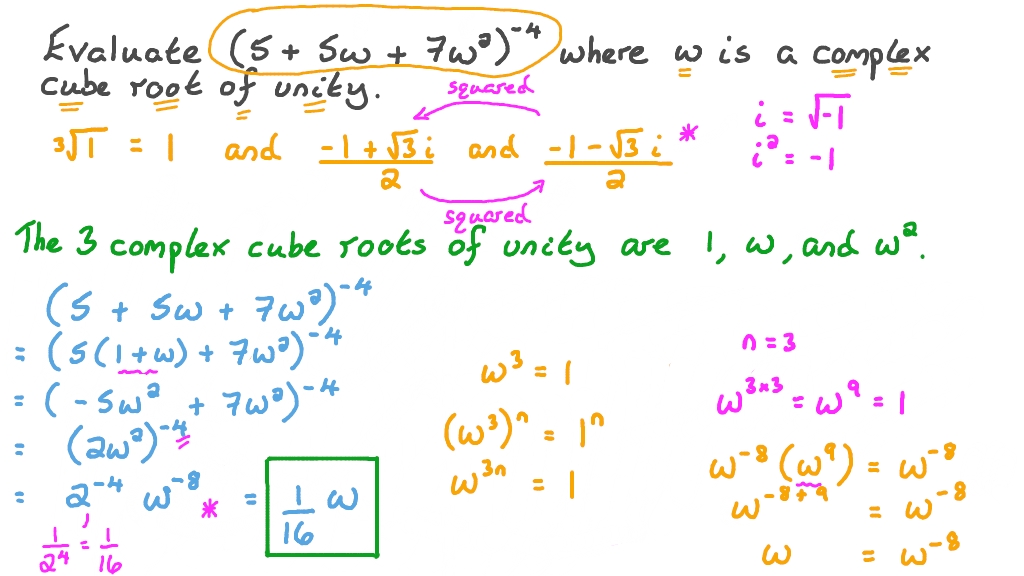 Evaluate (5 + 5ω + 7ω²)⁻⁴ where ω is a complex
cube root of unity.
squared
³√1 = 1 and (-1 + √3 i)/2 and (-1 - √3 i)/2 *
squared
i = √-1
i² = -1
The 3 complex cube roots of unity are 1, ω, and ω².
(5 + 5ω + 7ω²)⁻⁴
= (5(1+ω) + 7ω²)⁻⁴
= (-5ω² + 7ω²)⁻⁴
= (2ω²)⁻⁴
= 2⁻⁴ ω⁻⁸ * = 1/16 ω
1/2⁴ = 1/16
ω³ = 1
(ω³)ⁿ = 1ⁿ
ω³ⁿ = 1
n = 3
ω³ˣ³ = ω⁹ = 1
ω⁻⁸ (ω⁹) = ω⁻⁸
ω⁻⁸⁺⁹ = ω⁻⁸
ω = ω⁻⁸